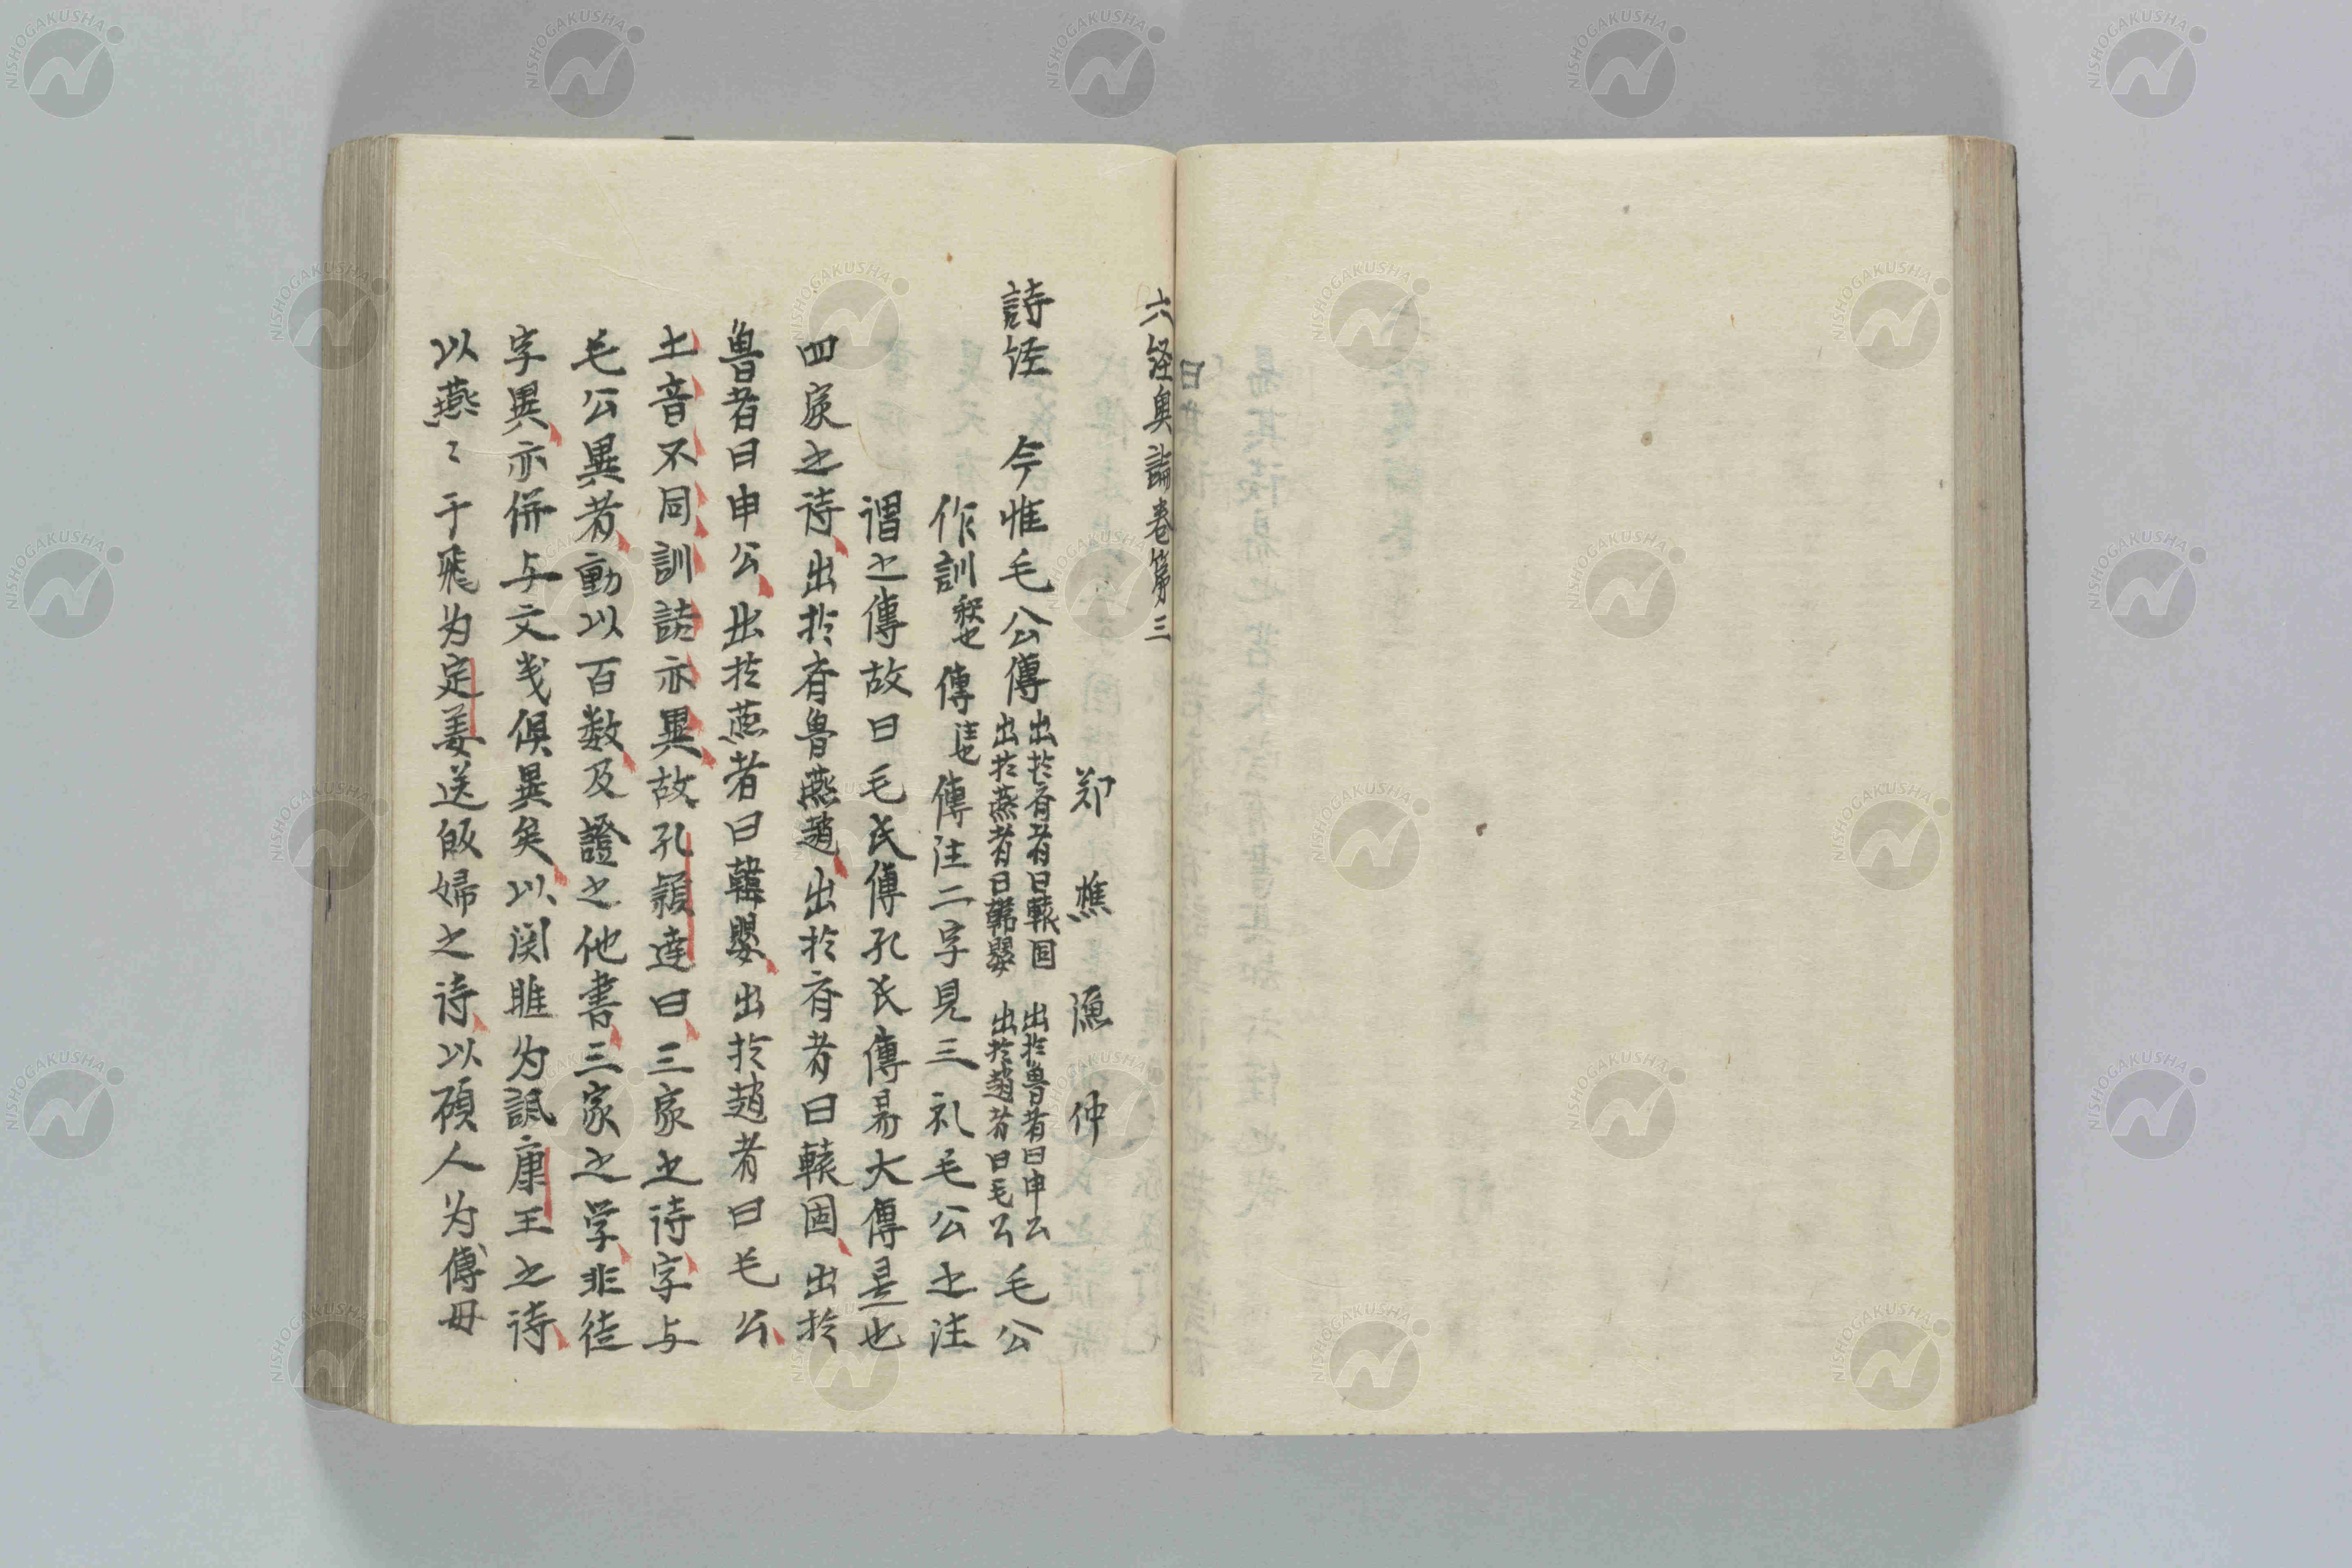 六经奥論卷第三
郑樵漁仲
詩经　今惟毛公傳　出於齐者曰轅固　出於魯者曰申公
出於燕者曰韓嬰　出於趙者曰毛公　毛公
作訓　也　傳注也　傳注二字見三礼毛公之注
謂之傳故曰毛氏傳孔氏傳易大傳是也
四家之诗出於齐魯燕趙出於齐者曰轅固出於
魯者曰申公出於燕者曰韓嬰出於趙者曰毛公
土音不同訓詁亦異故孔颖達曰三家之诗字与
毛公異者動以百数及證之他書三家之学非徒
字異亦併与文义俱異矣以関雎为諷康王之诗
以燕〻于飛为定姜送皈婦之诗以碩人为傅母
NISHOGAKUSHA